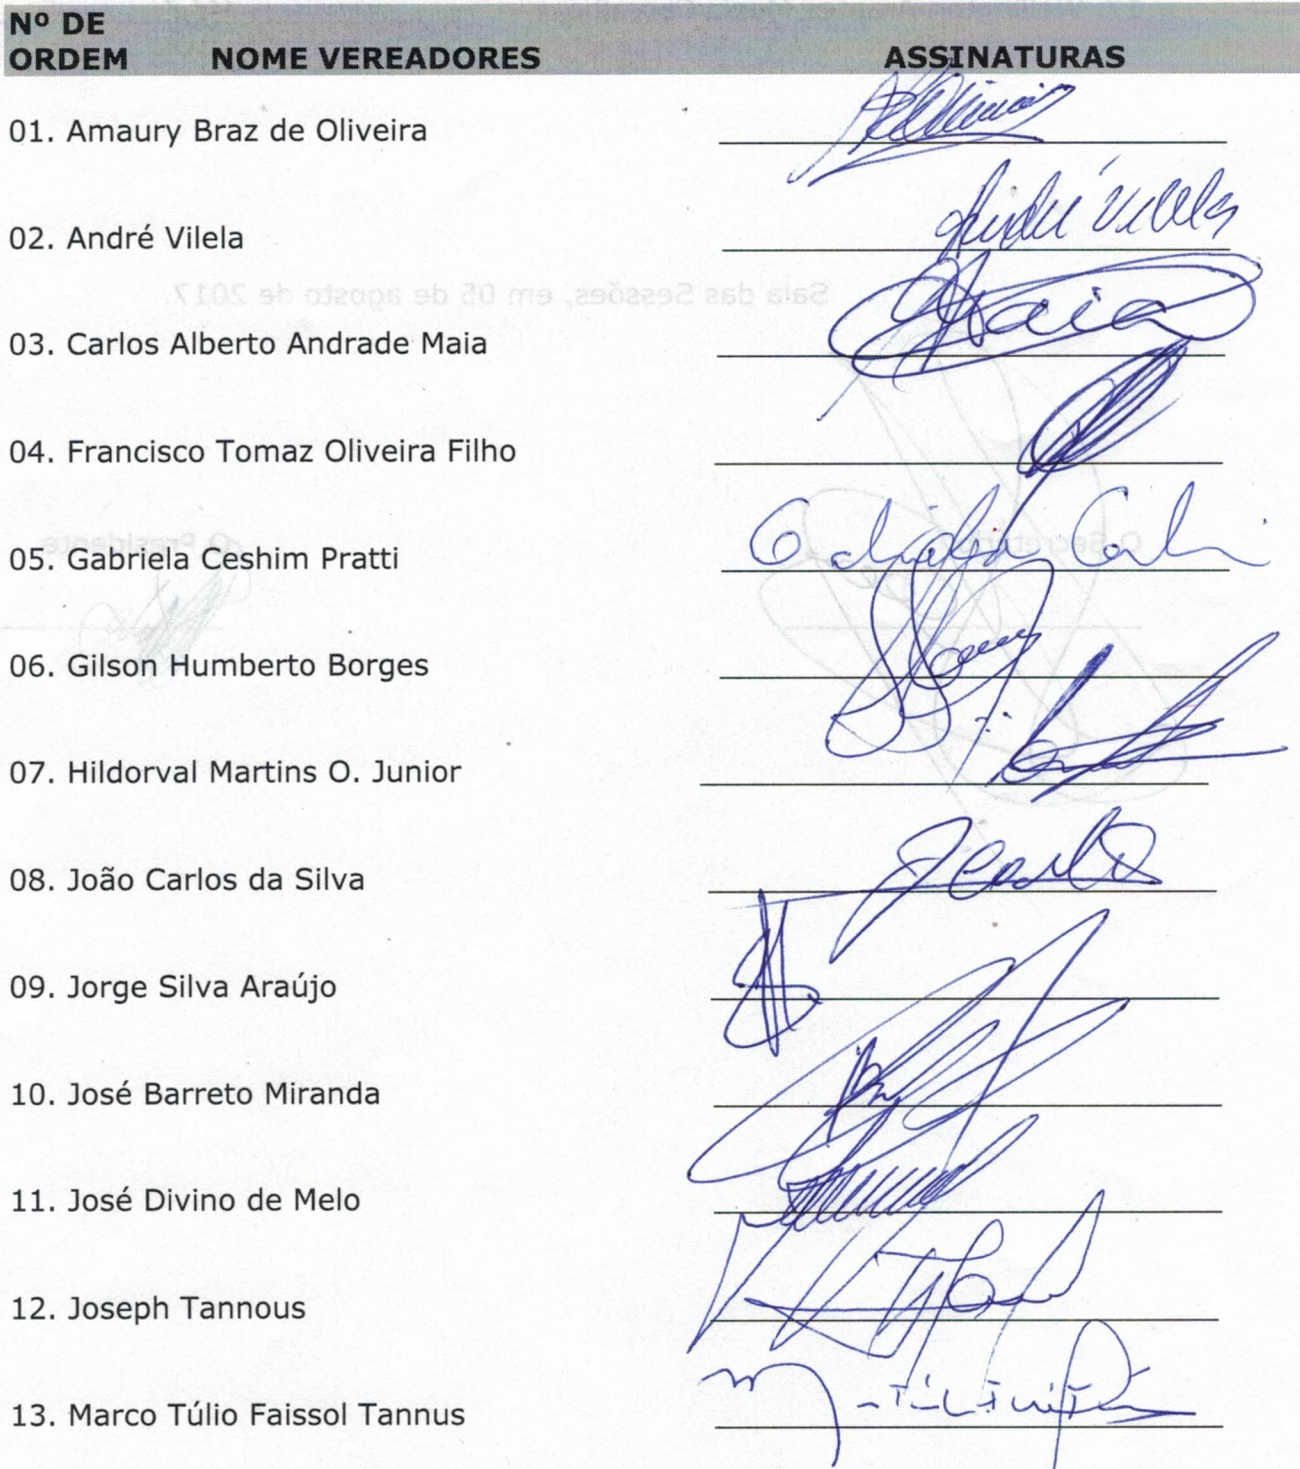 Nº DE
ORDEM NOME VEREADORES ASSINATURAS
01. Amaury Braz de Oliveira
02. André Vilela André Vilela
Sala das Sessões, em 05 de agosto de 2017.
03. Carlos Alberto Andrade Maia Maia
04. Francisco Tomaz Oliveira Filho
O Secretário O Presidente
05. Gabriela Ceshim Pratti
06. Gilson Humberto Borges
07. Hildorval Martins O. Junior
08. João Carlos da Silva
09. Jorge Silva Araújo
10. José Barreto Miranda
11. José Divino de Melo
12. Joseph Tannous
13. Marco Túlio Faissol Tannus